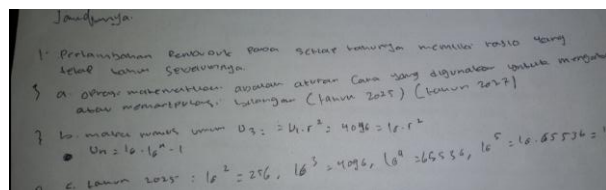 Jawabannya.
1. Pertambahan Penduduk pada setiap tahunnya memiliki rasio yang
tetap tahun sebelumnya.
3 a. operasi matematika adalah aturan cara yang digunakan untuk
atau bilangan (tahun 2025) (tahun 2027)
3 b. maka rumus umum U3 : = U1.r² = 4096 = 16.r²
• Un = 16.16ⁿ-1
c. tahun 2025 : 16² = 256, 16³ = 4096, 16⁴ = 65536, 16⁵ = 16.65536 =